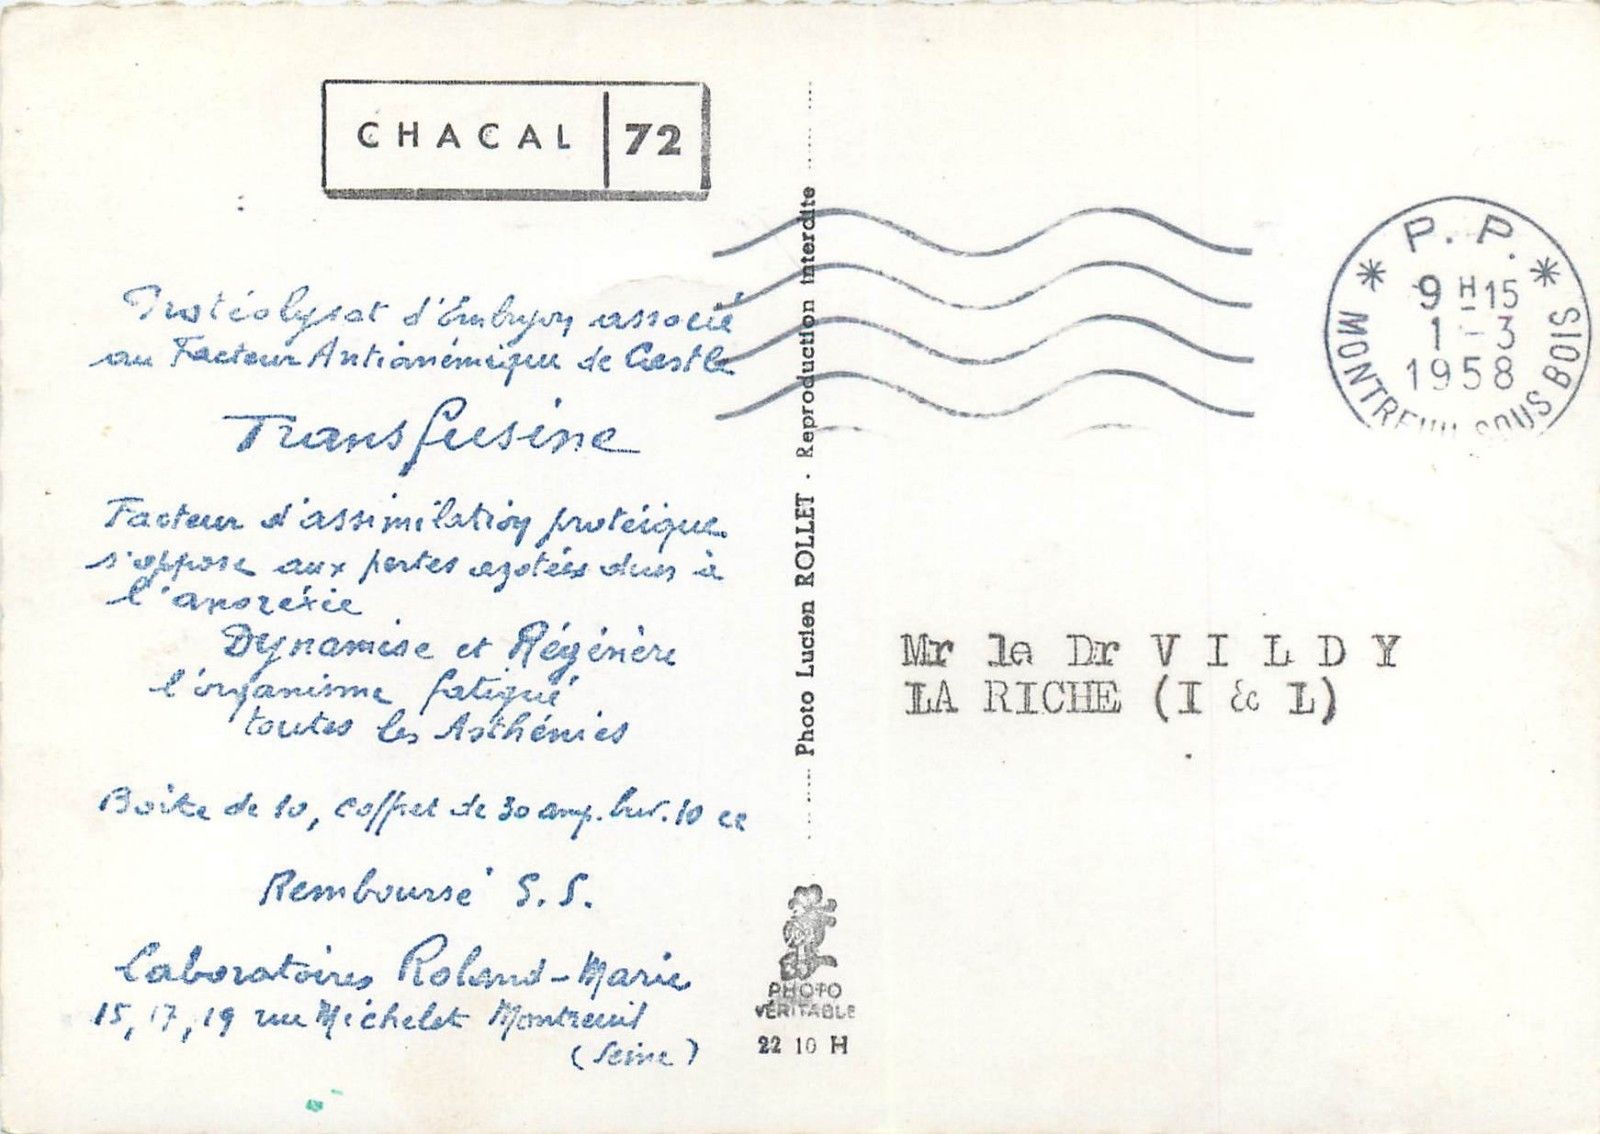 CHACAL 72
Protéolysat d'Embryon associé
au Facteur Antianémique de Castle
Transfusine
Facteur d'assimilation protéique
s'oppose aux pertes azotées dues à
l'anoréxie
Dynamise et Régénère
l'organisme fatigué
toutes les Asthénies
Boîte de 10, coffret de 30 amp. buv. 10 cc
Remboursé S.S.
Laboratoires Roland-Marie
15, 17, 19 rue Michelet Montreuil
(Seine)
Photo Lucien ROLLET - Reproduction interdite
PHOTO
VÉRITABLE
22 10 H
P. P.
9 H 15
1 - 3
1958
* MONTREUIL SOUS BOIS *
Mr le Dr V I L D Y
LA RICHE (I & L)